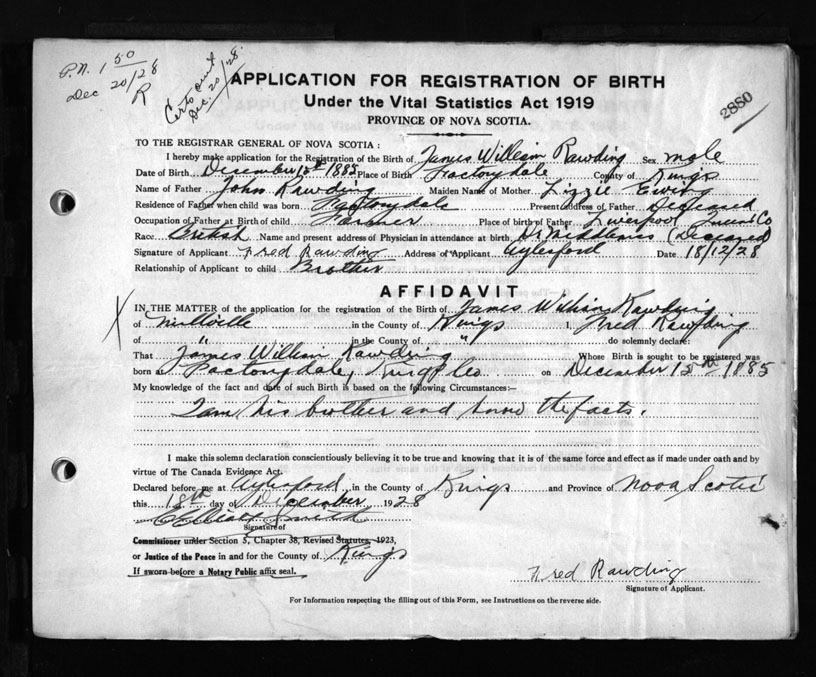 P.N. 1 50
Dec 20/28
R
Dec. 20/28
2880
APPLICATION FOR REGISTRATION OF BIRTH
Under the Vital Statistics Act 1919
PROVINCE OF NOVA SCOTIA.
TO THE REGISTRAR GENERAL OF NOVA SCOTIA:
I hereby make application for the Registration of the Birth of James William Rawding Sex male
Date of Birth December 15th 1885 Place of Birth Factorydale County of Kings
Name of Father John Rawding Maiden Name of Mother Lizzie Ewing
Residence of Father when child was born Factorydale Present address of Father Deceased
Occupation of Father at Birth of child Farmer Place of birth of Father Liverpool Queens Co
Race British Name and present address of Physician in attendance at birth Dr Middlemas (Deceased)
Signature of Applicant Fred Rawding Address of Applicant Aylesford Date 18/12/28
Relationship of Applicant to child Brother
AFFIDAVIT
IN THE MATTER of the application for the registration of the Birth of James William Rawding
of Millville in the County of Kings I, Fred Rawding
of " in the County of " do solemnly declare:
That James William Rawding Whose Birth is sought to be registered was
born at Factorydale, Kings Co on December 15th 1885
My knowledge of the fact and date of such Birth is based on the following Circumstances:—
I am his brother and know the facts.
I make this solemn declaration conscientiously believing it to be true and knowing that it is of the same force and effect as if made under oath and by
virtue of The Canada Evidence Act.
Declared before me at Aylesford in the County of Kings and Province of Nova Scotia
this 18th day of December 1928
Smith
Signature of
Commissioner under Section 5, Chapter 38, Revised Statutes, 1923,
or Justice of the Peace in and for the County of Kings
If sworn before a Notary Public affix seal.
Fred Rawding
Signature of Applicant.
For Information respecting the filling out of this Form, see Instructions on the reverse side.